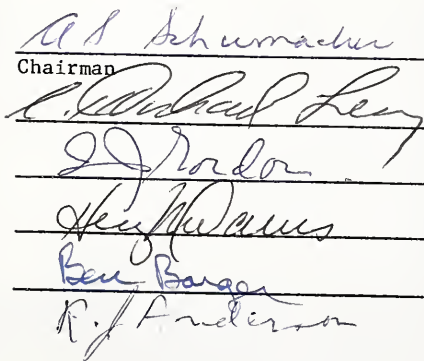 A S Schumacher
Chairman
C. Michael Levy
I J Gordon
Ben Barger
R. J Anderson